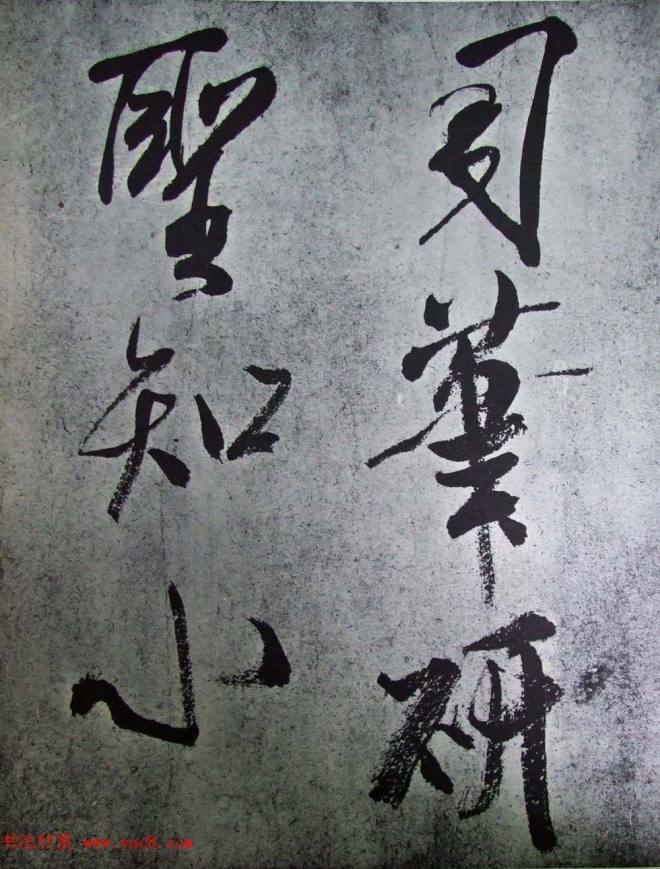 司筆研
聖知小
书法欣赏 www.yac8.com